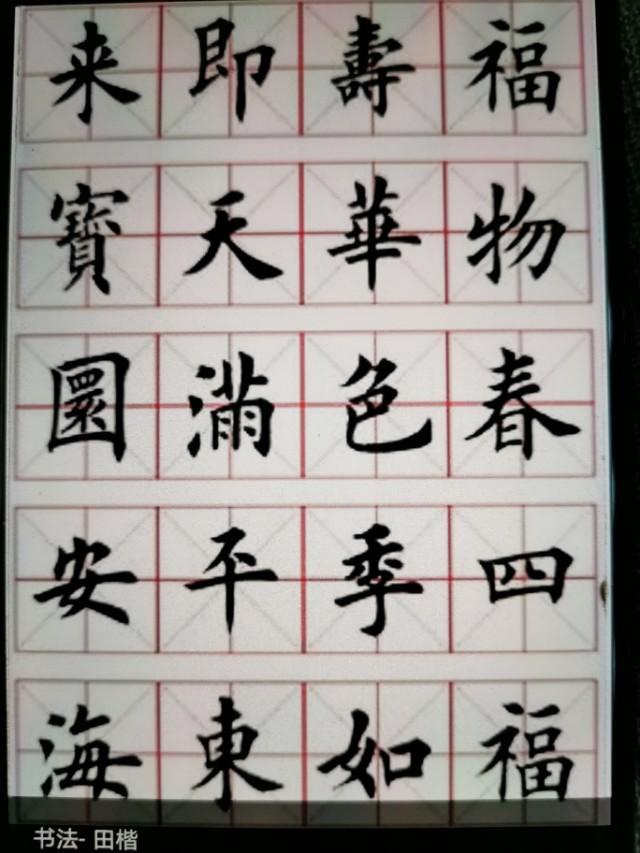 福壽即来
物華天寶
春色滿圜
四季平安
福如東海
书法- 田楷